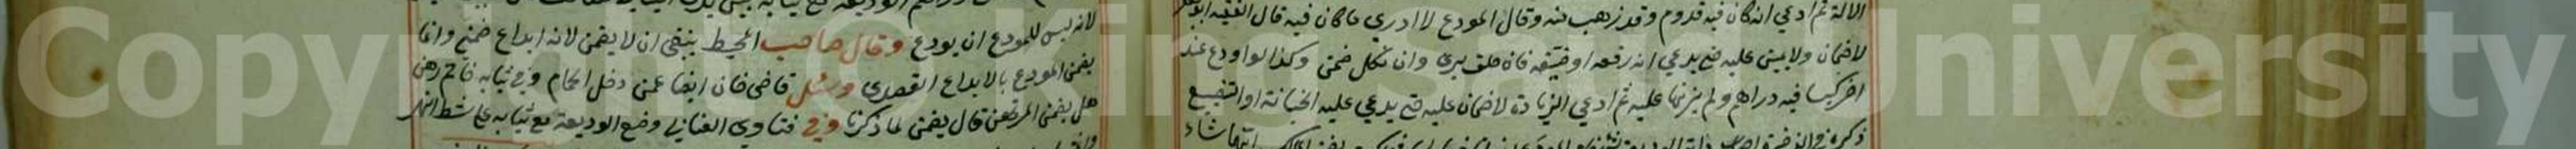 الآلة ثم ادعى انه كان فيه قدوم وقد ذهب منه وقال المودع لا ادري ما كان فيه قال الفقيه ابو جعفر
لا ضمان ولا يمين عليه حتى يدعي انه رفعه او ضيعه فان حلف برئ وان نكل ضمن وكذا لو اودع عند
اخر كيسا فيه دراهم ولم يزنها عليه ثم ادعى الزيادة لا ضمان عليه حتى يدعي عليه الخيانة او التضييع
لانه ليس للمودع ان يودع وقال صاحب المحيط ينبغي ان لا يضمن لانه ايداع ضمني وانما
يضمن المودع بالايداع القصدي وسئل قاضي خان ايضا عمن دخل الحمام وفي ثيابه خاتم رهن
هل يضمن المرتهن قال يضمن لما ذكرنا وفي فتاوى العتابي وضع الوديعة مع ثيابه على شط النهر
Copyright © King University